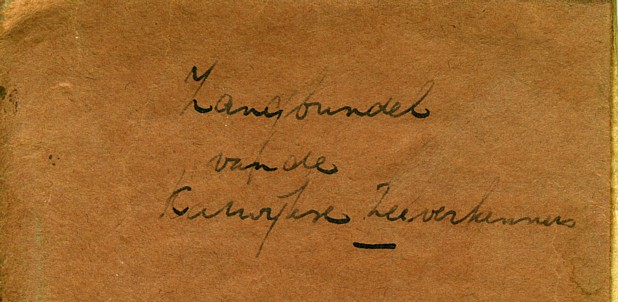 Zangbundel
van de
Zeeverkenners